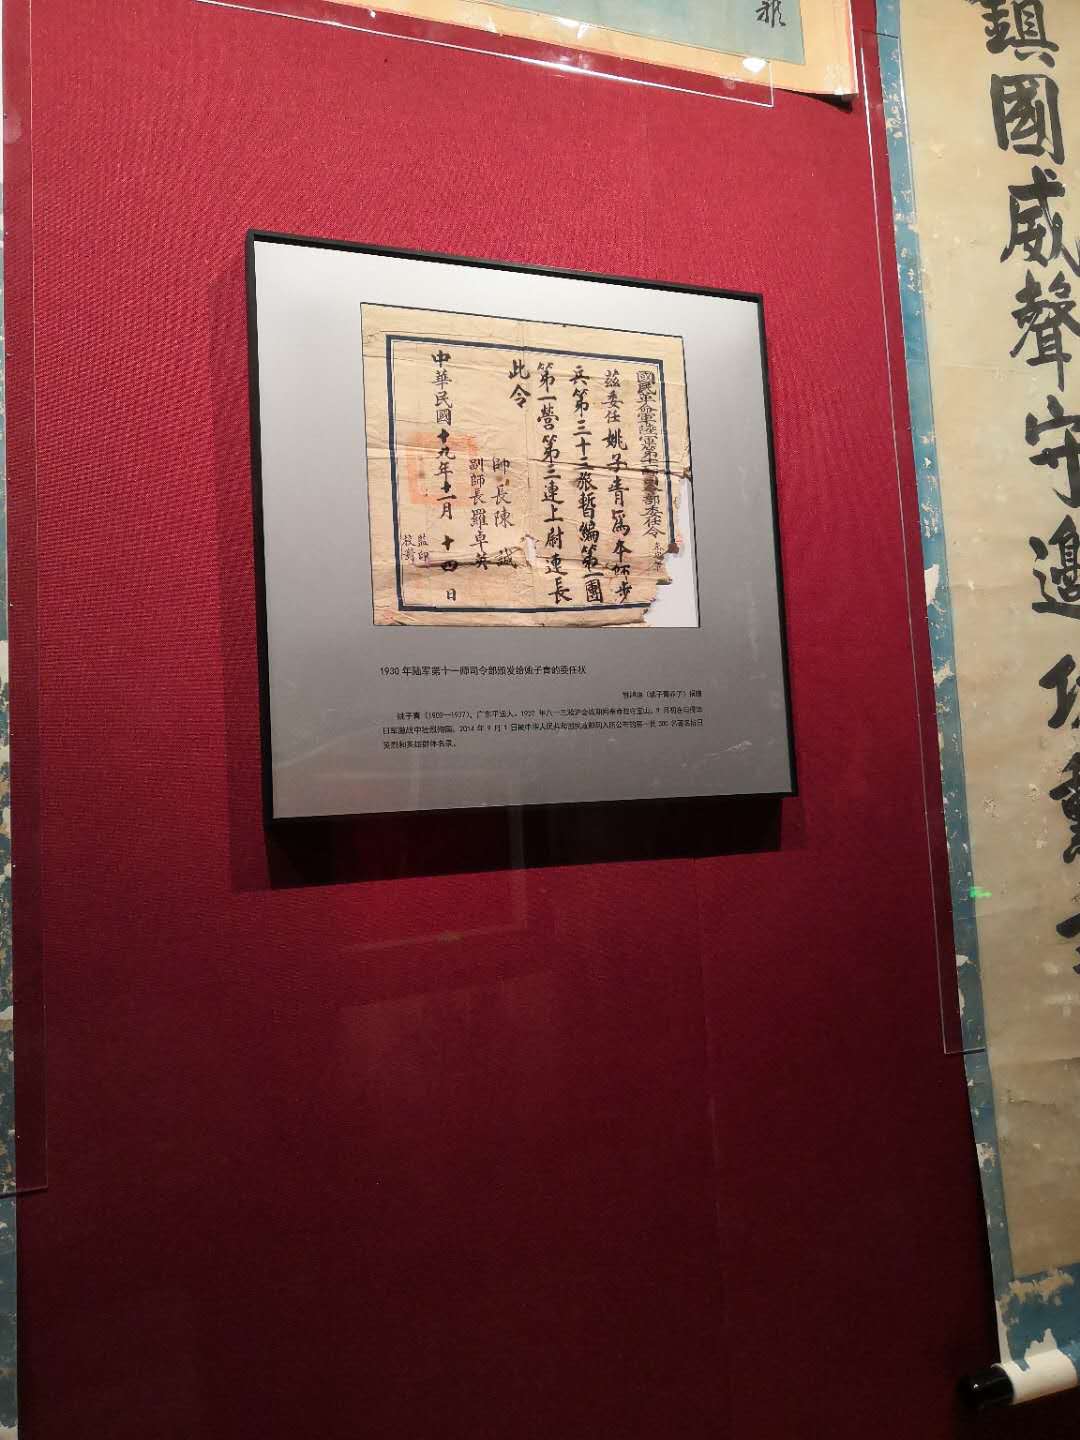 雅
鎮國威聲守邊
國民革命軍陸軍第十一師司令部委任令
茲委任姚子青為本師步
兵第三十二旅暫編第一團
第一營第三連上尉連長
此令
師長陳誠
副師長羅卓英
中華民國十九年十一月十四日
監印
校對
1930 年陆军第十一师司令部颁发给姚子青的委任状
（姚子青养子）捐赠
姚子青（1909—1937），广东平远人。1937 年八一三淞沪会战期间奉命驻守宝山。9 月初在与侵华
日军激战中壮烈殉国。2014 年 9 月 1 日被中华人民共和国民政部列入所公布的第一批 300 名著名抗日
英烈和英雄群体名录。